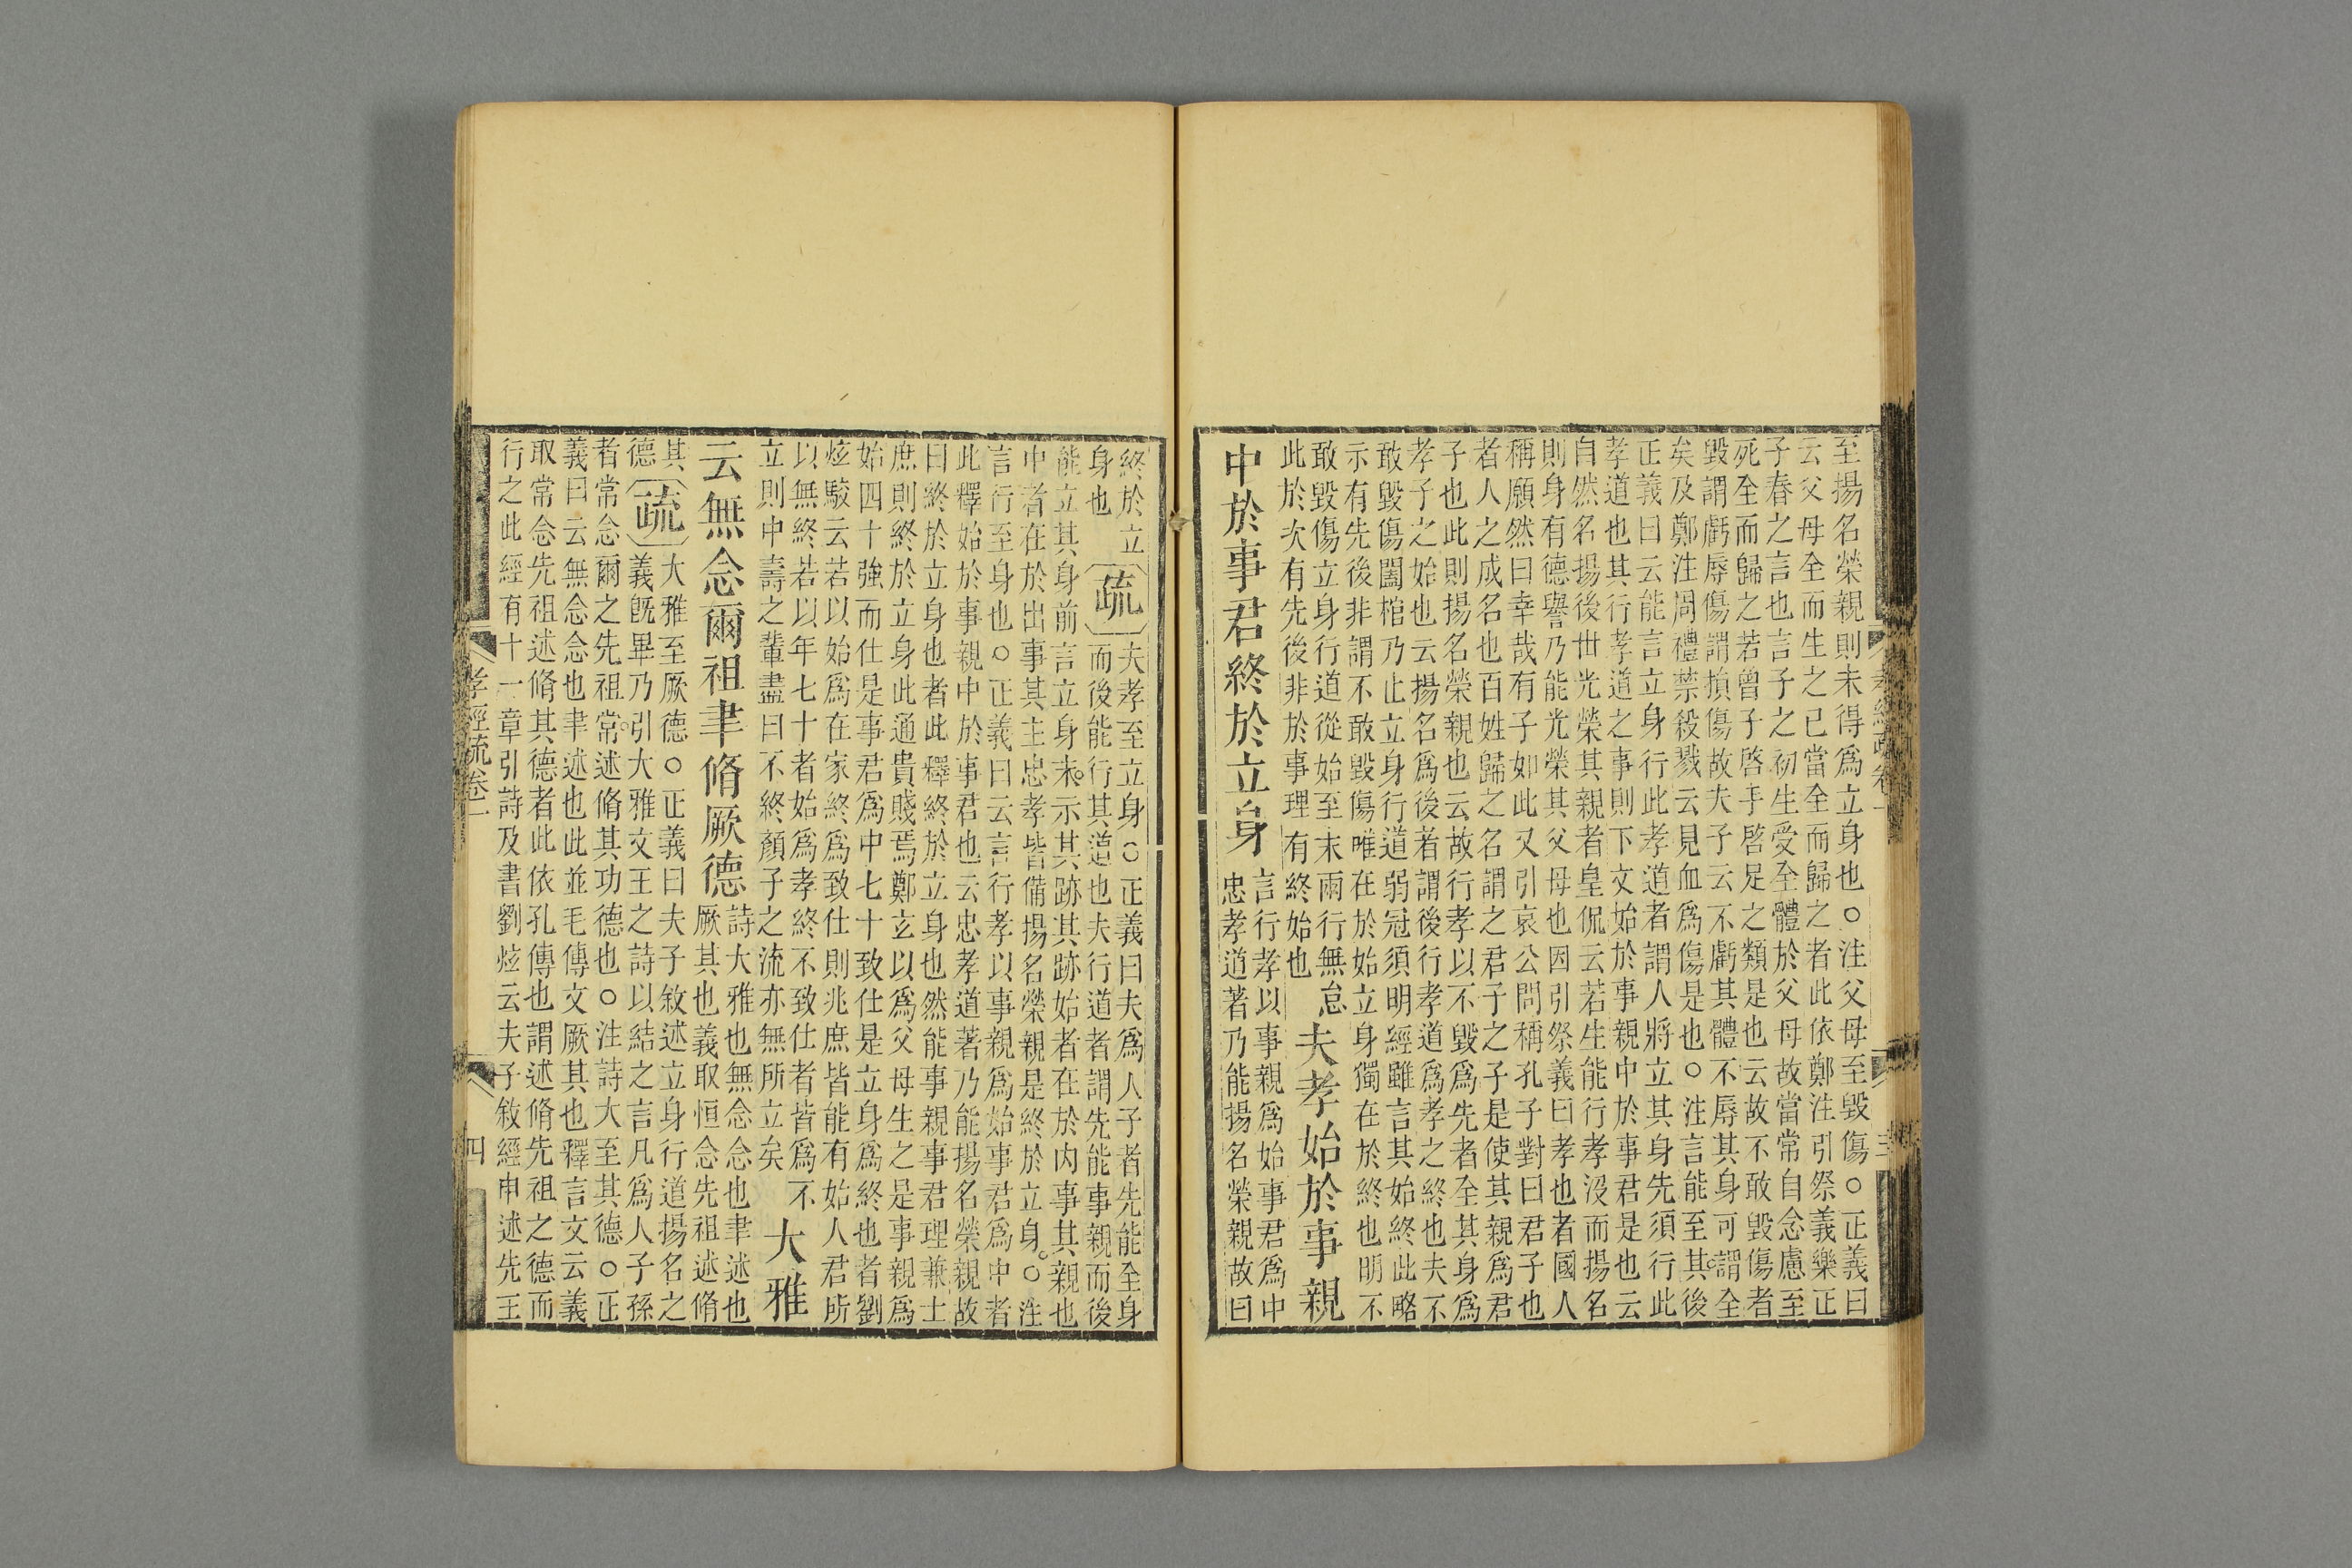 至揚名榮親則未得爲立身也○注父母至毀傷○正義曰
云父母全而生之已當全而歸之者此依鄭注引祭義樂正
子春之言也言子之初生受全體於父母故當常自念慮至
死全而歸之若曾子啓手啓足之類是也云故不敢毀傷者
毀謂虧辱傷謂損傷故夫子云不虧其體不辱其身可謂全
矣及鄭注周禮禁殺戮云見血爲傷是也○注言能至其後
正義曰云能言立身行此孝道者謂人將立其身先須行此
孝道也其行孝道之事則下文始於事親中於事君是也云
自然名揚後世光榮其親者皇侃云若生能行孝沒而揚名
則身有德譽乃能光榮其父母也因引祭義曰孝也者國人
稱願然曰幸哉有子如此又引哀公問稱孔子對曰君子也
者人之成名也百姓歸之名謂之君子之子是使其親爲君
子也此則揚名榮親也云故行孝以不毀爲先者全其身爲
孝子之始也云揚名爲後者謂後行孝道爲孝之終也夫不
敢毀傷闔棺乃止立身行道弱冠須明經雖言其始終此略
示有先後非謂不敢毀傷唯在於始立身獨在於終也明不
敢毀傷立身行道從始至末兩行無怠
此於次有先後非於事理有終始也
夫孝始於事親
中於事君終於立身
言行孝以事親爲始事君爲中
忠孝道著乃能揚名榮親故曰
孝經疏卷一
三
終於立
身也
疏
夫孝至立身○正義曰夫爲人子者先能全身
而後能行其道也夫行道者謂先能事親而後
能立其身前言立身末示其跡其跡始者在於內事其親也
中者在於出事其主忠孝皆備揚名榮親是終於立身○注
言行至身也○正義曰云言行孝以事親爲始事君爲中者
此釋始於事親中於事君也云忠孝道著乃能揚名榮親故
曰終於立身也者此釋終於立身也然能事親事君理兼士
庶則終於立身此通貴賤焉鄭玄以爲父母生之是事親爲
始四十強而仕是事君爲中七十致仕是立身爲終也者劉
炫駁云若以始爲在家終爲致仕則兆庶皆能有始人君所
以無終若以年七十者始爲孝終不致仕者皆爲不
立則中壽之輩盡曰不終顏子之流亦無所立矣
大雅
云無念爾祖聿脩厥德
詩大雅也無念念也聿述也
厥其也義取恒念先祖述脩
其
德
疏
大雅至厥德○正義曰夫子敘述立身行道揚名之
義旣畢乃引大雅文王之詩以結之言凡爲人子孫
者常念爾之先祖常述脩其功德也○注詩大至其德○正
義曰云無念念也聿述也此並毛傳文厥其也釋言文云義
取常念先祖述脩其德者此依孔傳也謂述脩先祖之德而
行之此經有十一章引詩及書劉炫云夫子敘經申述先王
孝經疏卷一
四